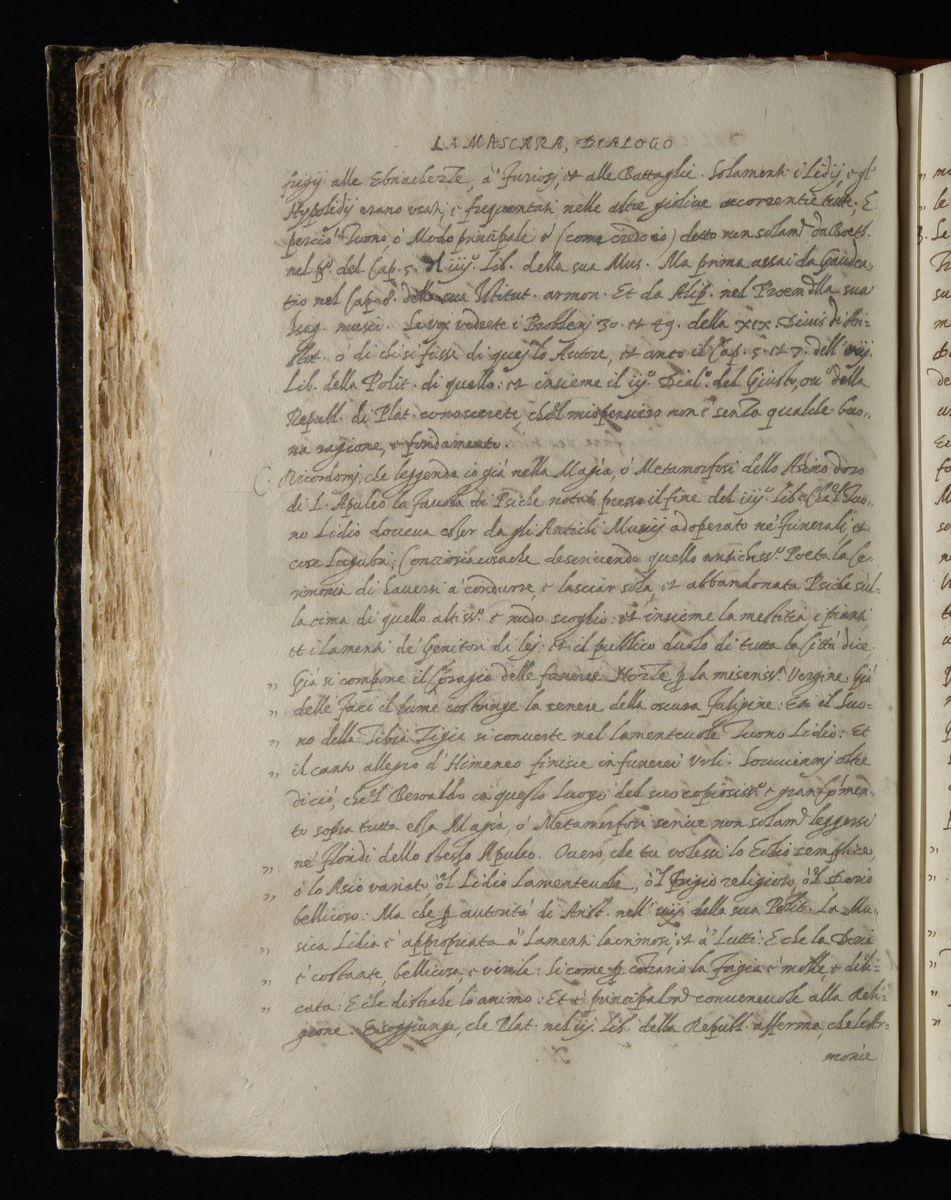 LA MASCARA, DIALOGO
frigij alle Ebriachezze, a' furiosi, et alle Battaglie. Solamenti i Lidij, e gl'
Hypolidij erano usati, e frequentati nelle altre giolive occorrentie tutte; E
perciò Tuono, ò Modo principale è (come credo io) detto non solam.e da Boet.
nel p.o del Cap. 5. del iiij.o lib. della sua Mus. Ma prima assai da Gauden,,
tio nel Cap. 8. della sua Istitut. armon. Et da Alip. nel Proem. della sua
Isag. music. Se voi vedrete i Problemj 30. et 49. della XIX. Divis. di Ari-
stot. o di chi si fusse di questo Autore, et anco il Cap. 5. et 7. dell' viij
Lib. della Polit. di quello: et insieme il iij.o Dial.o del Giusto, ov.o della
Republ. di Plat. conoscerete, che'l mio pensiero non è senza qualche buo,,
na ragione, e fondamento.
C. Ricordomj, che leggendo io già nella Magia, ò Metamorfosi dello Asino d'oro
di L. Apuleo la favola di Psiche notai presso il fine del iiij.o lib. Che'l Tuo,,
no Lidio doveva esser da gli Antichi Musici adoperato ne' funerali, et
cose lugubri; Conciosiacosache descrivendo quello antichiss.o Poeta la Ce,,
rimonia di haversi a' condurre e lasciar sola, et abbandonata Psiche sul-
la cima di quello altiss.o e nudo scoglio: et insieme la mestitia, i pianti
et i lamenti de' Genitori di lej: et il publico duolo di tutta la Città dice.
,, Già si compone il Coragio delle funeree Nozze p la miseriss.a Vergine. Già
,, delle faci il lume costringe la cenere della oscura fuligine: Era il Suo-
,, no della Tibia Zigia si converte nel lamentevole Tuono Lidio: Et
,, il canto allegro d' Himeneo finisce in funerei Urli. Sovviemmj oltre
di ciò, che'l Beroaldo in questo luogo del suo copiosiss.o e gran Comen,,
to sopra tutta essa Magia, ò Metamorfosi scrive non solam.e leggersi
,, ne' floridi dello stesso Apuleo. Overo che tu volessi lo Eolio semplice,
,, ò lo Asio variato ò'l Lidio lamentevole, ò'l frigio religioso, ò'l Dorio
bellicoso: Ma che p autorità di Arist. nell' viij. della sua Polit. La Mu,,
,, sica Lidia è appropriata a' lamenti lacrimosi, et a' Lutti: E che la Doria
,, è costante, bellicosa e virile: si come p contrario la frigia è molle, e deli-
,, cata: E che distrahe lo animo: Et è principalm.e convenevole alla Reli-
gione. E soggiunge, che Plat. nel iij. lib. della Republ. afferma, che le Ar-
monie